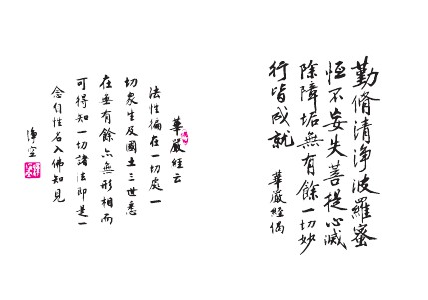 勤脩清淨波羅蜜
恆不妄失菩提心滅
除障垢無有餘一切妙
行皆成就
華嚴經偈
華嚴經云
法性徧在一切處一
切眾生及國土三世悉
在無有餘亦無形相而
可得知一切諸法即是一
念自性名入佛知見
淨空